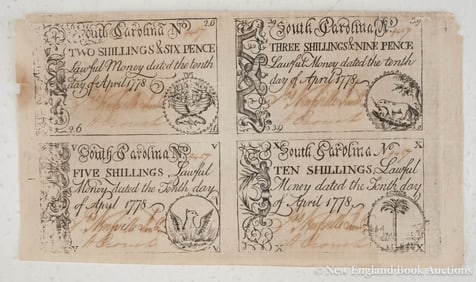 South Carolina No 26
TWO SHILLINGS & SIX PENCE
Lawful Money dated the tenth
day of April 1778
2.6
39 South Carolina No 39
THREE SHILLINGS & NINE PENCE
Lawful Money dated the tenth
day of April 1778
39
V South Carolina No V
FIVE SHILLINGS Lawful
Money dated the Tenth day
of April 1778
V V
X South Carolina No X
TEN SHILLINGS Lawful
Money dated the Tenth day
of April 1778
X X
© New England Book Auctions